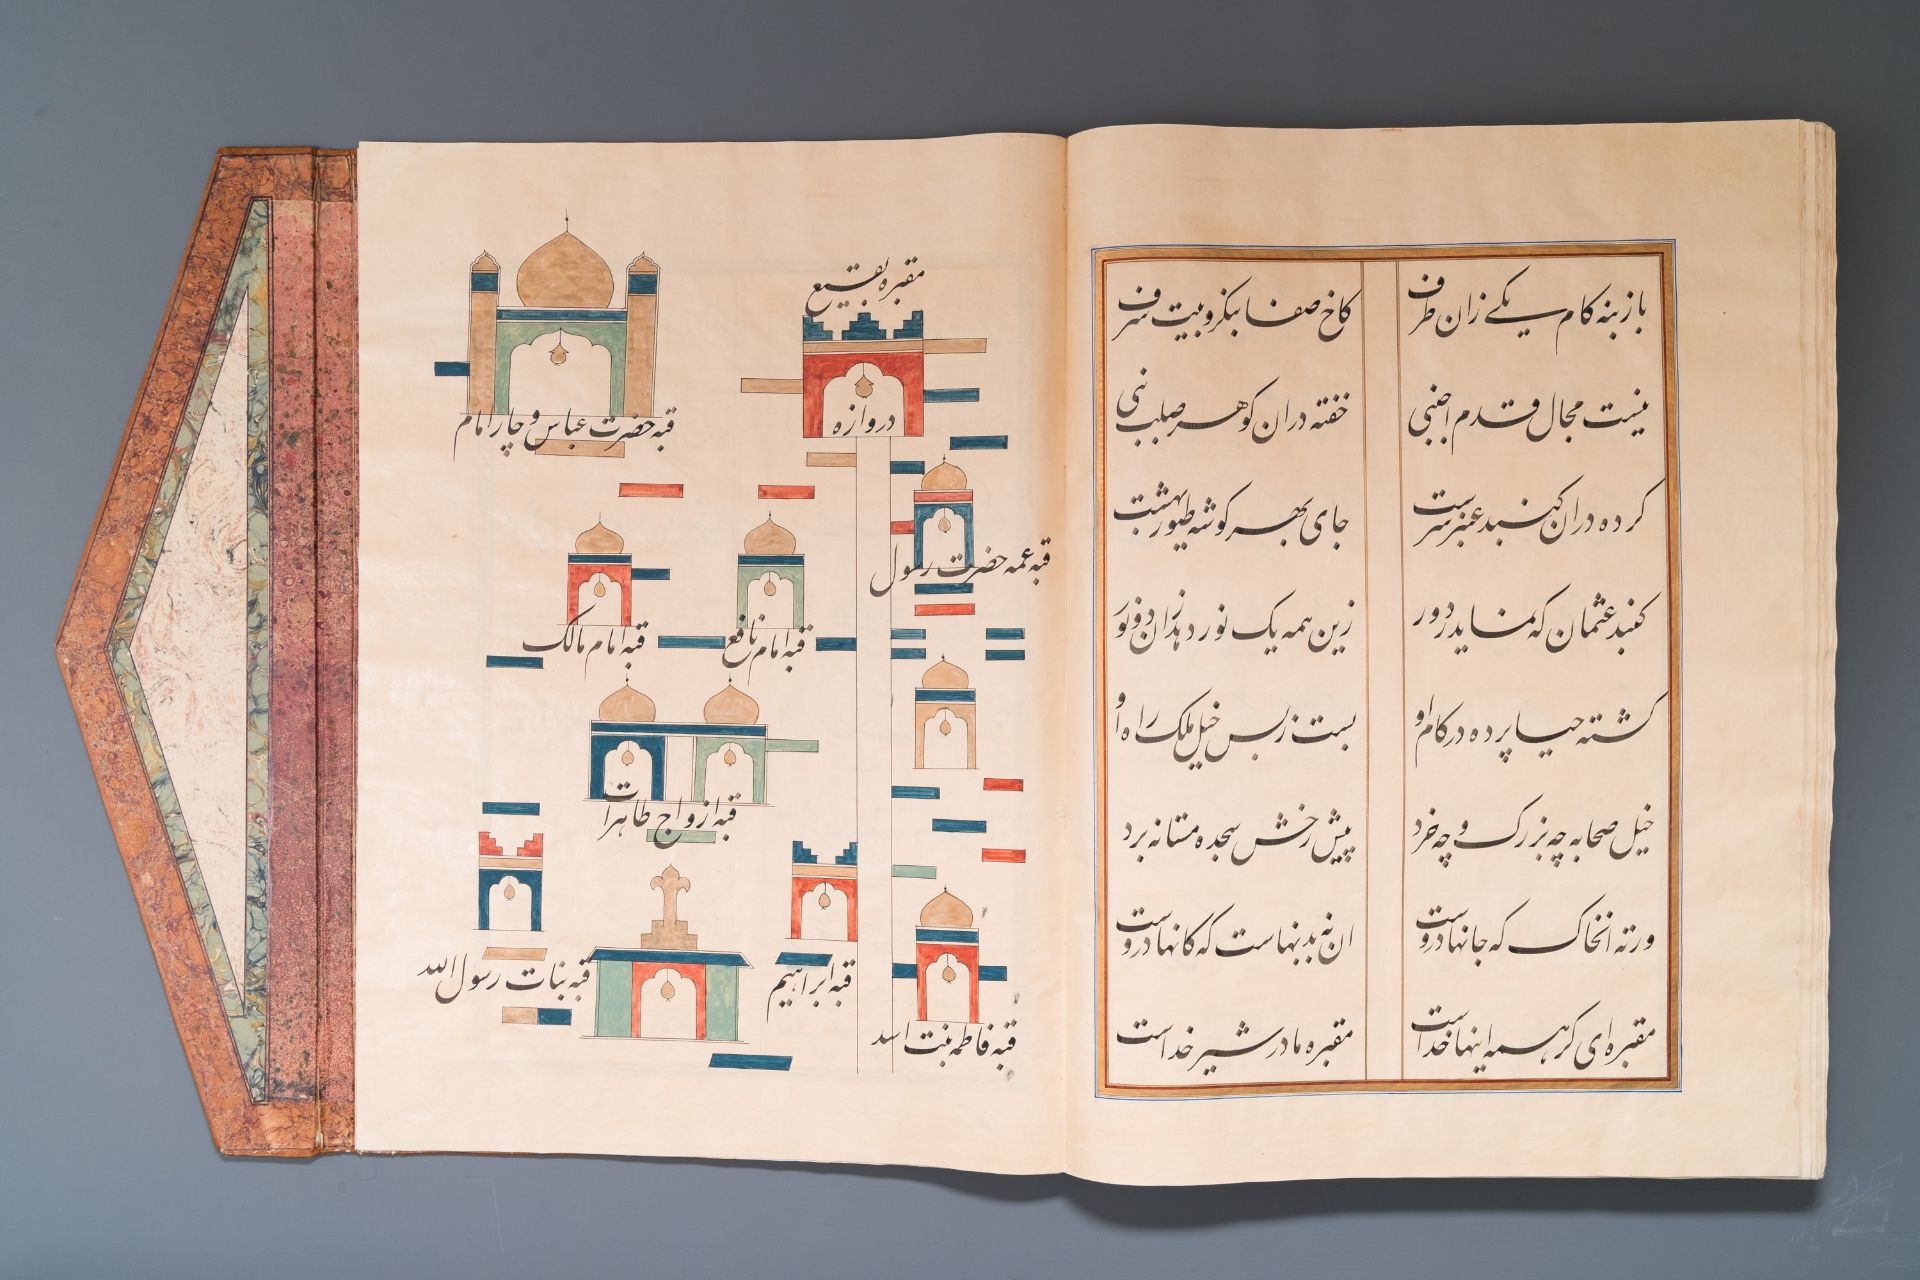 باز بنه کام یکے زان طرف
کاخ صفا بنکر و بیت شرف
نیست مجال قدم اجنبی
خفته دران کوهر صلب نبی
کرده دران کنبد عنبر سرشت
جای بهر کوشه طیور بهشت
کنبد عثمان که نماید ز دور
زین همه یک نور دهد زان دو نور
کشته حیا پرده در کام او
بست ز بس خیل ملک راه او
خیل صحابه چه بزرک و چه خرد
پیش رخش سجده مستانه برد
ورته انخاک که جانها دروست
ان نه بدنهاست که کانها دروست
مقبره ای کر همه اینها خداست
مقبره مادر شیر خداست
مقبره بقیع
دروازه
قبه حضرت عباس و چار امام
قبه عمه حضرت رسول
قبه امام نافع
قبه امام مالک
قبه ازواج طاهرات
قبه ابراهیم
قبه بنات رسول الله
قبه فاطمه بنت اسد